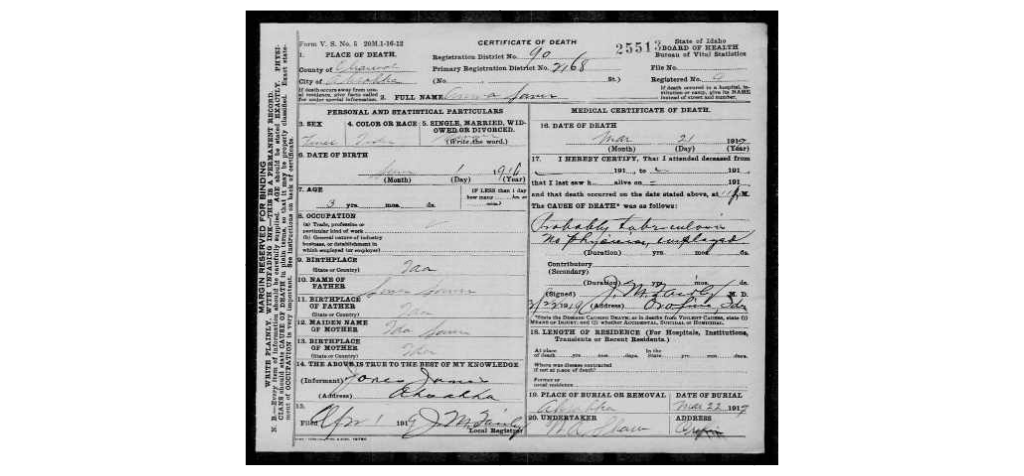 Form V. S. No. 5 20M.1-16-12
CERTIFICATE OF DEATH
25513
State of Idaho
BOARD OF HEALTH
Bureau of Vital Statistics
1. PLACE OF DEATH.
County of
City of Ahsahka
If death occurs away from usual residence, give facts called for under special information.
Registration District No. 90
Primary Registration District No. 2168
(No. St.)
File No.
Registered No.
If death occurred in a hospital, institution or camp, give its NAME instead of street and number.
2. FULL NAME
PERSONAL AND STATISTICAL PARTICULARS
3. SEX
4. COLOR OR RACE
5. SINGLE, MARRIED, WIDOWED OR DIVORCED.
(Write the word.)
6. DATE OF BIRTH
1 1916
(Month) (Day) (Year)
7. AGE
3 yrs. mos. ds.
IF LESS than 1 day how many hrs. or min.
8. OCCUPATION
(a) Trade, profession or particular kind of work
(b) General nature of industry business, or establishment in which employed (or employer)
9. BIRTHPLACE
(State or Country)
10. NAME OF FATHER
James
11. BIRTHPLACE OF FATHER
(State or Country)
12. MAIDEN NAME OF MOTHER
13. BIRTHPLACE OF MOTHER
(State or Country)
14. THE ABOVE IS TRUE TO THE BEST OF MY KNOWLEDGE
(Informant) Jones James
(Address) Ahsahka
15.
Filed Apr 1 191 J. M. Fairly
Local Registrar
MEDICAL CERTIFICATE OF DEATH.
16. DATE OF DEATH
Mar 21 191
(Month) (Day) (Year)
17. I HEREBY CERTIFY, That I attended deceased from
191 , to 191
that I last saw h alive on 191
and that death occurred on the date stated above, at M.
The CAUSE OF DEATH* was as follows:
Probably tuberculosis
No physician employed
(Duration) yrs. mos. ds.
Contributory
(Secondary)
(Duration) yrs. mos. ds.
(Signed) J. M. Fairly M. D.
3/22 1919 (Address) Orofino Ida
*State the DISEASE CAUSING DEATH; or in deaths from VIOLENT CAUSES, state (1) MEANS OF INJURY; and (2) whether ACCIDENTAL, SUICIDAL or HOMICIDAL.
18. LENGTH OF RESIDENCE (For Hospitals, Institutions, Transients or Recent Residents.)
At place of death yrs. mos. days. In the State yrs. mos. days
Where was disease contracted if not at place of death?
Former or usual residence
19. PLACE OF BURIAL OR REMOVAL
Ahsahka
DATE OF BURIAL
Mar 22 191
20. UNDERTAKER
ADDRESS
MARGIN RESERVED FOR BINDING
WRITE PLAINLY, WITH UNFADING INK—THIS IS A PERMANENT RECORD.
N. B.—Every item of information should be carefully supplied. AGE should be stated EXACTLY. PHYSICIANS should state CAUSE OF DEATH in plain terms, so that it may be properly classified. Exact statement of OCCUPATION is very important. See instructions on back of certificate.